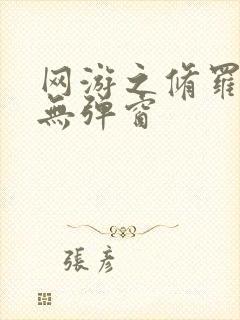 网游之脩羅
無弹窗
張彦